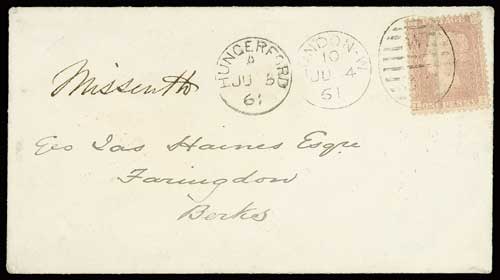 HUNGERFORD
A
JU 5
61
LONDON·W
10
JU 4
61
Missent to
Geo Jas Haines Esqre
Faringdon
Berks
ONE PENNY